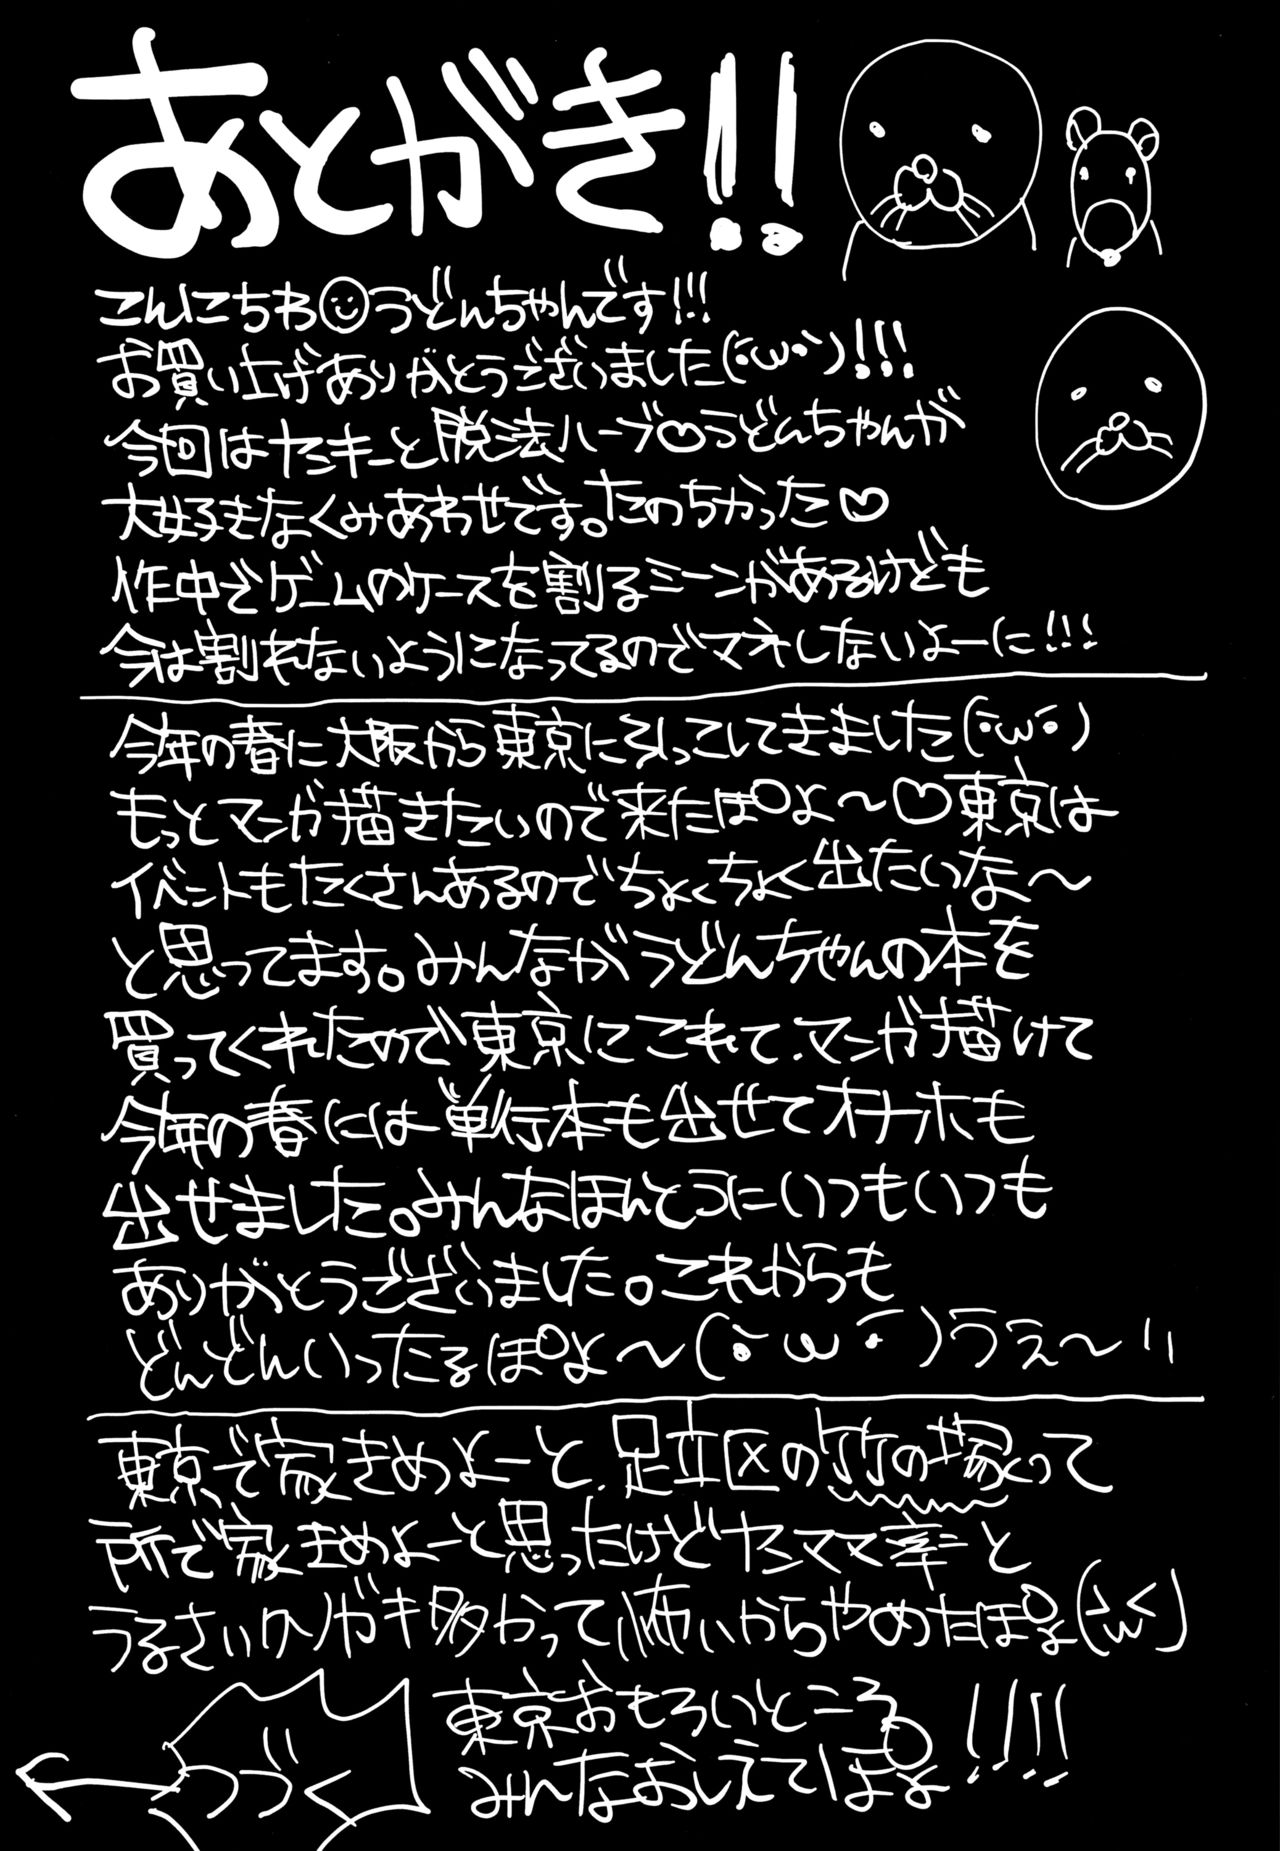 あとがき!!
こんにちわ☺うどんちゃんです!!!
お買い上げありがとうございました(･ω･)!!!
今回はヤミキーと脱法ハーブ♡うどんちゃんが
大好きなくみあわせです。たのちかった♡
作中でゲームのケースを割るシーンがあるけども
今は割れないようになってるのでマネしないよーに!!!
今年の春に大阪から東京に引っこしてきました(･ω･)
もっとマンガ描きたいので来たぽよ〜♡東京は
イベントもたくさんあるのでちょくちょく出たいな〜
と思ってます。みんながうどんちゃんの本を
買ってくれたので東京にこれて、マンガ描けて
今年の春には単行本も出せてオナホも
出せました。みんなほんとうにいつもいつも
ありがとうございました。これからも
どんどんいったるぽよ〜(･ω･)うぇ〜い
東京で家きめよーと、足立区の竹の塚って
所で家きめよーと思ったけどヤンママ率と
うるさいクソガキ多かって怖いからやめたぽよ(>ω<)
東京おもろいところ
みんなおしえてぽよ!!!!
つづく